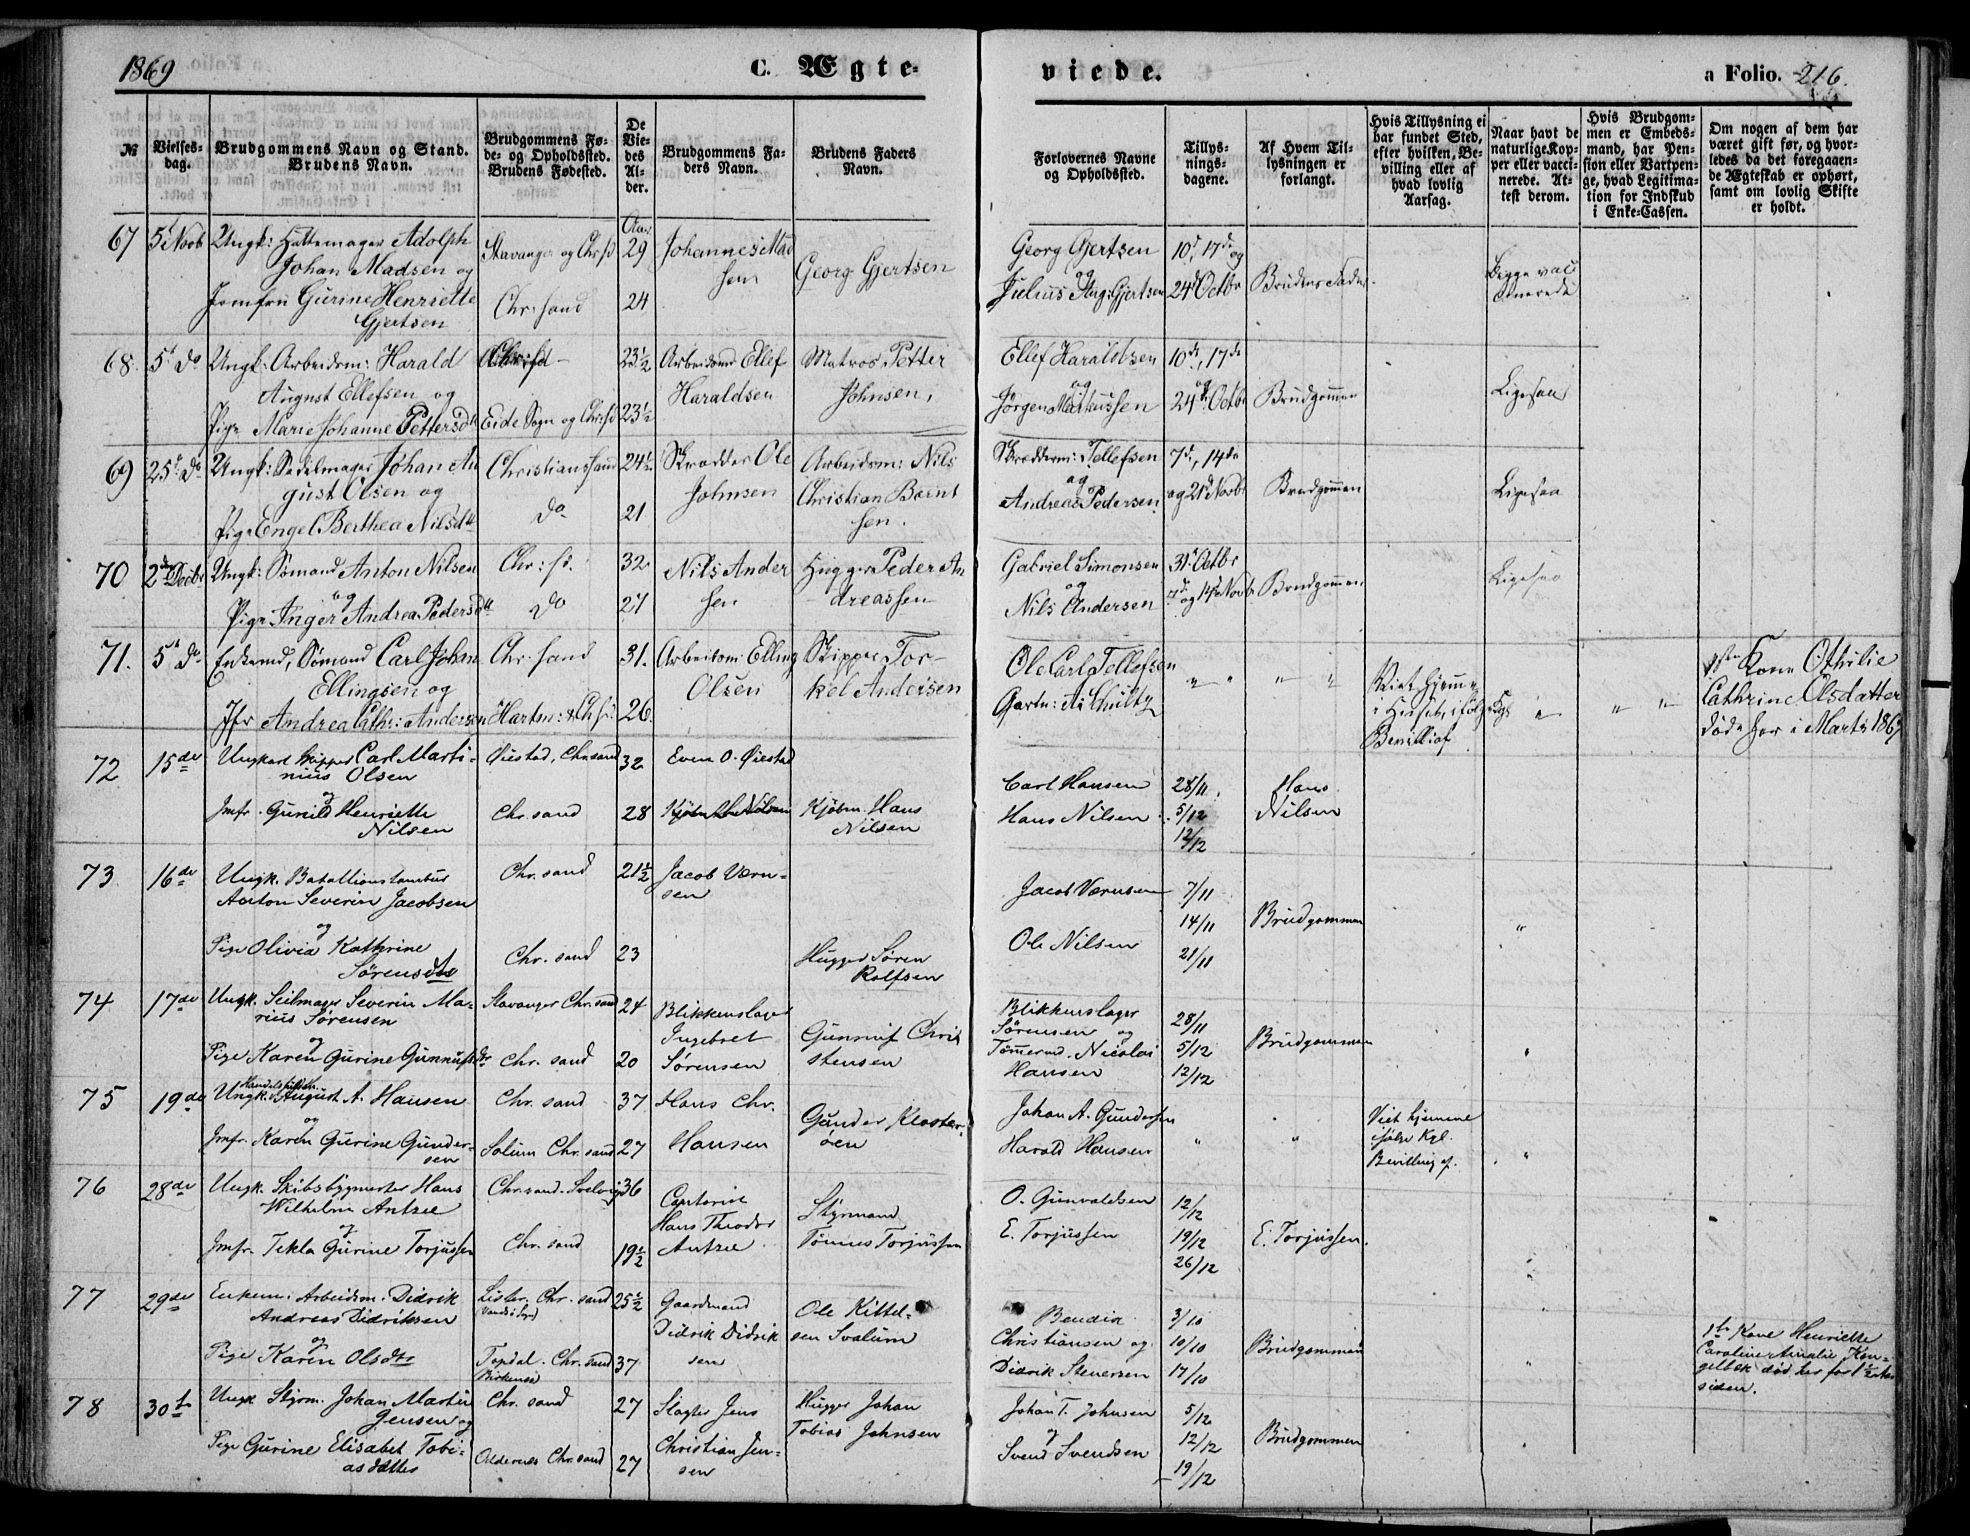 1869
C. Ægte-
viede.
a Folio. 216.
№
Vielses-
dag.
Brudgommens Navn og Stand.
Brudens Navn.
Brudgommens Fø-
de- og Opholdssted.
Brudens Fødested.
De
Vie-
des
Al-
der.
Brudgommens Fa-
ders Navn.
Brudens Faders
Navn.
Forlovernes Navne
og Opholdssted.
Tillys-
nings-
dagene.
Af Hvem Til-
lysningen er
forlangt.
Hvis Tillysning ei
har fundet Sted,
efter hvilken, Be-
villing eller af
hvad lovlig
Aarsag.
Naar havt de
naturlige Kop-
per eller vacci-
nerede. At-
test derom.
Hvis Brudgom-
men er Embeds-
mand, har Pen-
sion eller Vartpen-
ge, hvad Legitima-
tion for Indskud
i Enke-Cassen.
Om nogen af dem har
været gift før, og hvor-
ledes da det foregaaen-
de Ægteskab er ophørt,
samt om lovlig Skifte
er holdt.
67 5t Novb Ungk: Hattemager Adolph
Johan Madsen og
Jomfru Gurine Henriette
Gjertsen
Stavanger og Chr.sd
Chr: sand
Aar
29
24
Johannes Mad
sen
Georg Gjertsen
Georg Gjertsen
Julius Aug: Gjertsen
10d, 17de og
24d Octbr
Brudens Fader
Begge vac
cinerede
68. 5t do Ungk: Arbeidsm: Harald
August Ellefsen og
Pige Marie Johanne Pettersdtr
Chr: sd
Eide Sogn og Chr.sd
23½
23½
Arbeidsmd Ellef
Haraldsen
Matros Petter
Johnsen,
Ellef Haraldsen
og
Jørgen Markussen
10de, 17de
og
24de Octbr
Brudgommen
Ligesaa
69 25t do Ungk: Seilmager Johan Au
gust Olsen og
Pige Engel Berthea Nilsdtr
Christianssand
do
24½
21
Skrædder Ole
Johnsen
Arbeidsm: Nils
Christian Bernt
sen.
Skrædderm: Tellefsen
og
Andreas Pedersen
7de, 14de
og 21d Novbr
Brudgommen
Ligesaa
70 2d Decbr Ungk: Sømand Anton Nilsen
og
Pige Inger Andrea Pedersdtr
Chr: sd.
do
32
27
Nils Ander
sen
Hugger Peder An
dreassen
Gabriel Simonsen
og
Nils Andersen
31t Octbr
7de og 14de Novbr
Brudgommen
Ligesaa
71. 5t do Enkemd, Sømand Carl John
Ellingsen og
Jfr Andrea Cath: Andersen
Chr: sand
Hartm: & Chr.sd
31.
26.
Arbeitsm: Elling
Olsen
Skipper Tor-
kel Andersen
Ole Carl Tellefsen
Gartn: A. Schultz
" "
" "
Viet hjemme
i Huset ifølge Kgl
Bevilling
"
" "
1ste Kone Othilie
Cathrine Olsdatter
døde her i Marts 1867
72 15de Ungkarl Skipper Carl Marti-
nius Olsen
og
Jmfr. Gunild Henriette
Nilsen
Øiestad, Chr.sand
Chr. sand
32
28
Even O. Øiestad
Kjøbm. Hans
Nilsen
Carl Hansen
Hans Nilsen
28/11,
5/12
12/12
Hans
Nilsen
73. 16de Ungk. Bataillonstambur
Anton Severin Jacobsen
og
Pige Olivia Kathrine
Sørensdtr
Chr. sand
Chr. sand
21½
23
Jacob Værn-
sen
Hugger Søren
Rolfsen
Jacob Værnsen
Ole Nilsen
7/11
14/11
21/11
Brudgommen
"
74 17de Ungk. Seilmager Severin Ma-
rius Sørensen
og
Pige Karen Gurine Gunnufsdtr
Stavanger Chr. sand
Chr. sand
24
20
Blikkenslager
Ingebret
Sørensen
Gunnuf Chri
stensen
Blikkenslager
Sørensen og
Tømmermd. Nicolai
Hansen
28/11
5/12
12/12
Brudgommen
75 19de Ungk. Handelsfuldm. August A. Hansen
og
Jmfr. Karen Gurine Gunder-
sen
Chr. sand
Solum Chr. sand
37
27
Hans Chr.
Hansen
Gunder Kloster-
øen
Johan A. Gundersen
Harald Hansen
"
"
Viet hjemme
ifølge Kgl.
Bevilling af.
"
76 28de Ungk. Skibsbygmester Hans
Wilhelm Antzee
og
Jmfr. Tekla Gurine Torjussen
Chr. sand. Svelvig
Chr. sand
36
19½
Hans Theodor
Antzee
Styrmand
Tønnes Torjussen
O. Gunvaldsen
E. Torjussen
12/12
19/12
26/12
E. Torjussen.
77 29de Enkem. Arbeidsm. Didrik
Andreas Didriksen
og
Pige Karen Olsdtr
Lister. Chr. sand
Topdal. Chr. sand
Birkenes
25½
37
Gaardmand
Didrik Didrik
sen
Ole Kittel-
sen Svalum
Bendix
Christiansen og
Didrik Stenersen
3/10
10/10
17/10
Brudgommen
"
1te Kone Henriette
Caroline Amalie Kon-
gelbek død her for 1½ Aar
siden.
78 30te Ungk Styrm. Johan Martin
Jensen og
Pige Gurine Elisabet Tobi-
asdatter
Chr. sand
Oddernes Chr. sand
27
27
Slagter Jens
Christian Jen-
sen
Hugger Johan
Tobias Johnsen
Johan T. Johnsen
og
Svend Svendsen
5/12
12/12
19/12
Brudgommen